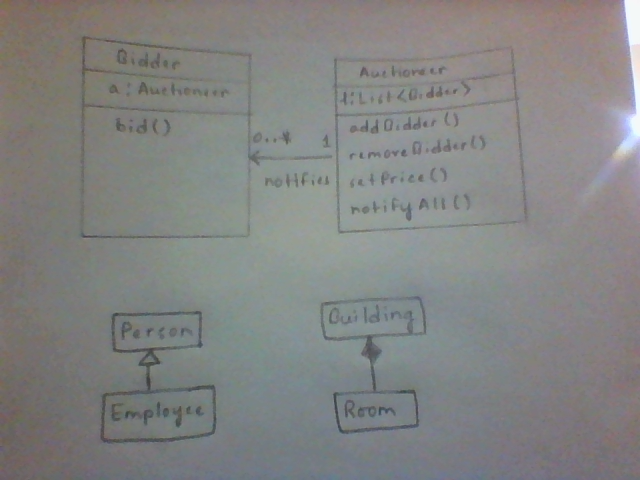 Bidder
a: Auctioneer
bid()
0..*
1
notifies
Auctioneer
l:List<Bidder>
addBidder()
removeBidder()
setPrice()
notifyAll()
Person
Employee
Building
Room